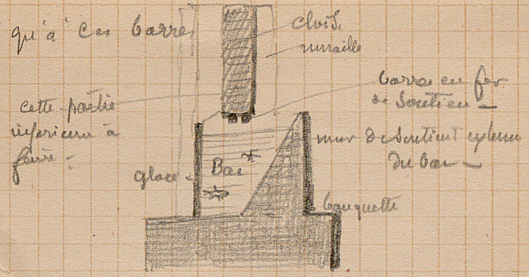 qu'à ces barres
cloison
muraille
barres en fer
de soutien
cette partie
inférieure à
faire
mur de soutient externe
du bac
glace
Bac
banquette